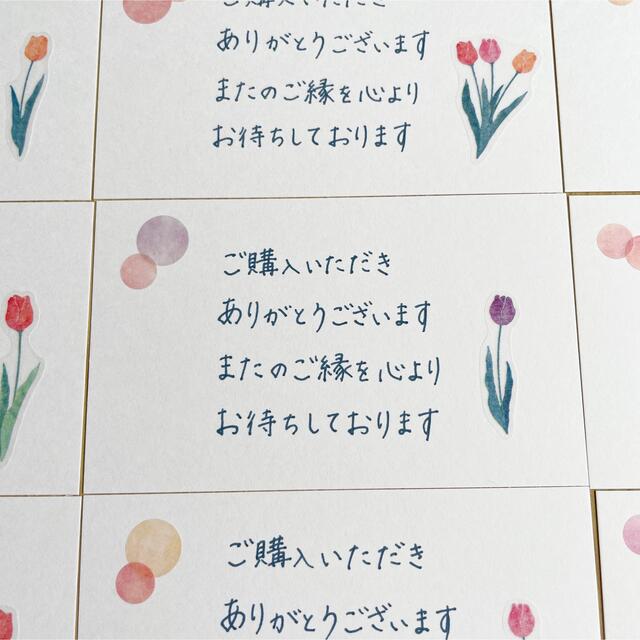 ご購入いただき
ありがとうございます
またのご縁を心より
お待ちしております
ご購入いただき
ありがとうございます
またのご縁を心より
お待ちしております
ご購入いただき
ありがとうございます